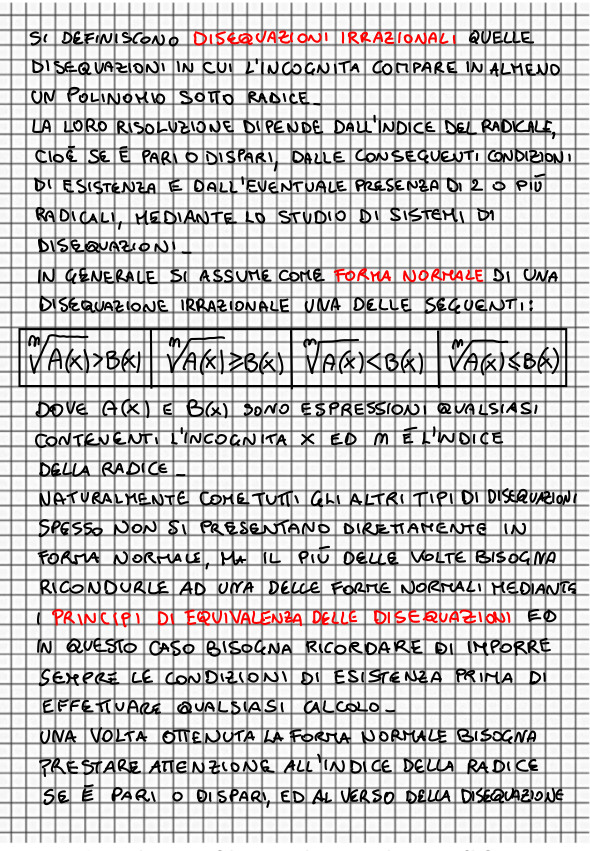 SI DEFINISCONO DISEQUAZIONI IRRAZIONALI QUELLE
DISEQUAZIONI IN CUI L'INCOGNITA COMPARE IN ALMENO
UN POLINOMIO SOTTO RADICE_
LA LORO RISOLUZIONE DIPENDE DALL'INDICE DEL RADICALE,
CIOÈ SE È PARI O DISPARI, DALLE CONSEGUENTI CONDIZIONI
DI ESISTENZA E DALL'EVENTUALE PRESENZA DI 2 O PIÙ
RADICALI, MEDIANTE LO STUDIO DI SISTEMI DI
DISEQUAZIONI_
IN GENERALE SI ASSUME COME FORMA NORMALE DI UNA
DISEQUAZIONE IRRAZIONALE UNA DELLE SEGUENTI:
ᵐ√A(x)>B(x) ᵐ√A(x)≥B(x) ᵐ√A(x)<B(x) ᵐ√A(x)≤B(x)
DOVE A(x) E B(x) SONO ESPRESSIONI QUALSIASI
CONTENENTI L'INCOGNITA X ED M È L'INDICE
DELLA RADICE_
NATURALMENTE COME TUTTI GLI ALTRI TIPI DI DISEQUAZIONI
SPESSO NON SI PRESENTANO DIRETTAMENTE IN
FORMA NORMALE, MA IL PIÙ DELLE VOLTE BISOGNA
RICONDURLE AD UNA DELLE FORME NORMALI MEDIANTE
I PRINCIPI DI EQUIVALENZA DELLE DISEQUAZIONI ED
IN QUESTO CASO BISOGNA RICORDARE DI IMPORRE
SEMPRE LE CONDIZIONI DI ESISTENZA PRIMA DI
EFFETTUARE QUALSIASI CALCOLO_
UNA VOLTA OTTENUTA LA FORMA NORMALE BISOGNA
PRESTARE ATTENZIONE ALL'INDICE DELLA RADICE
SE È PARI O DISPARI, ED AL VERSO DELLA DISEQUAZIONE